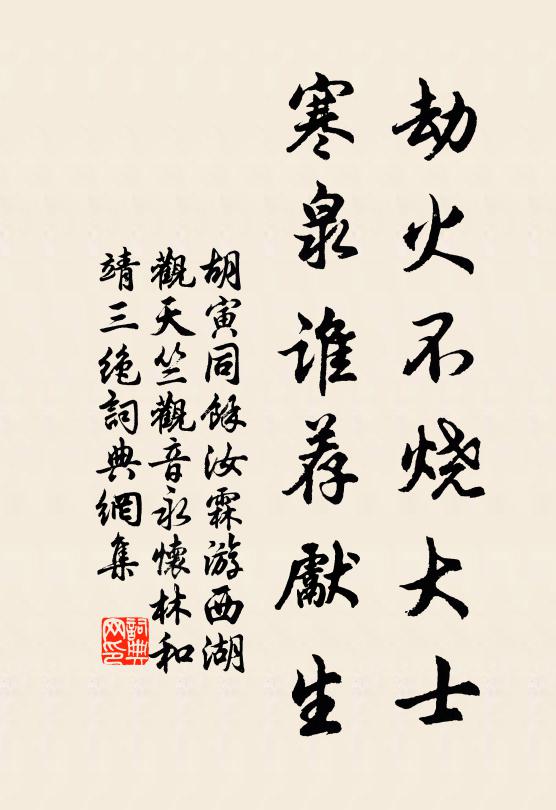 劫火不烧大士
寒泉谁荐獻生
胡寅同餘汝霖游西湖
觀天竺觀音永懷林和
靖三绝詞典網集
詞典网印